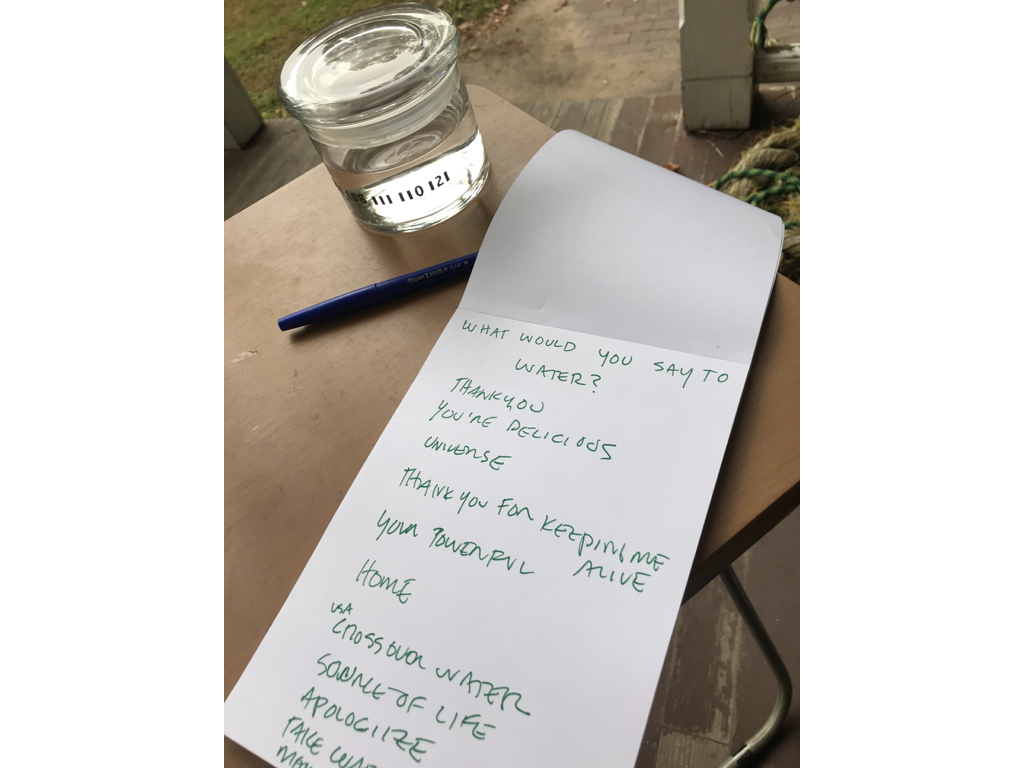 108 111 110 121
WHAT WOULD YOU SAY TO
WATER?
THANK YOU
YOU'RE DELICIOUS
UNIVERSE
THANK YOU FOR KEEPING ME
ALIVE
YOUR POWERFUL
HOME
USA
CROSS OVER WATER
SOURCE OF LIFE
APOLOGIIZE